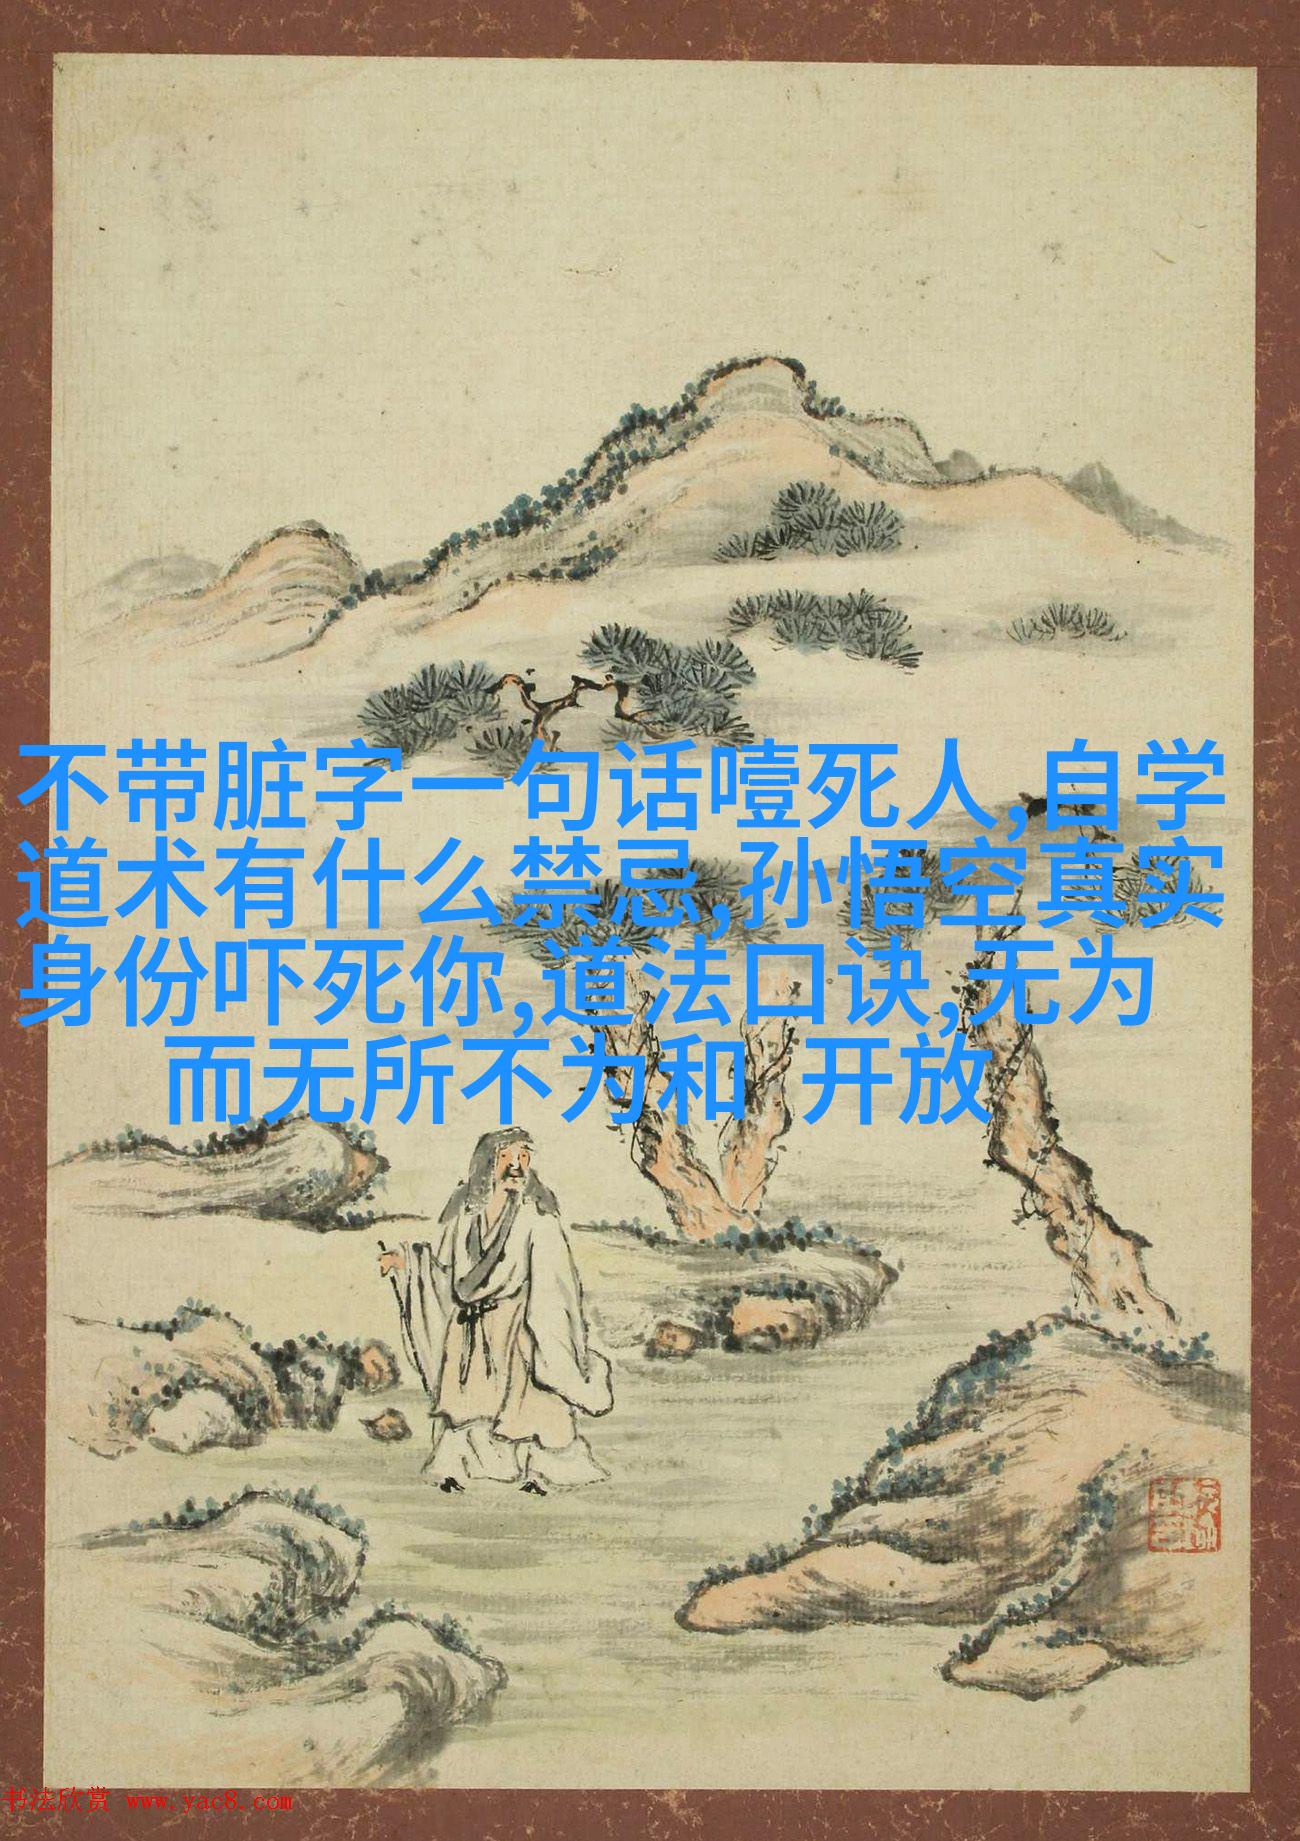 不带脏字一句话噎死人,自学
道术有什么禁忌,孙悟空真实
身份吓死你,道法口诀,无为
而无所不为和 开放
书法欣赏 www.yac8.com